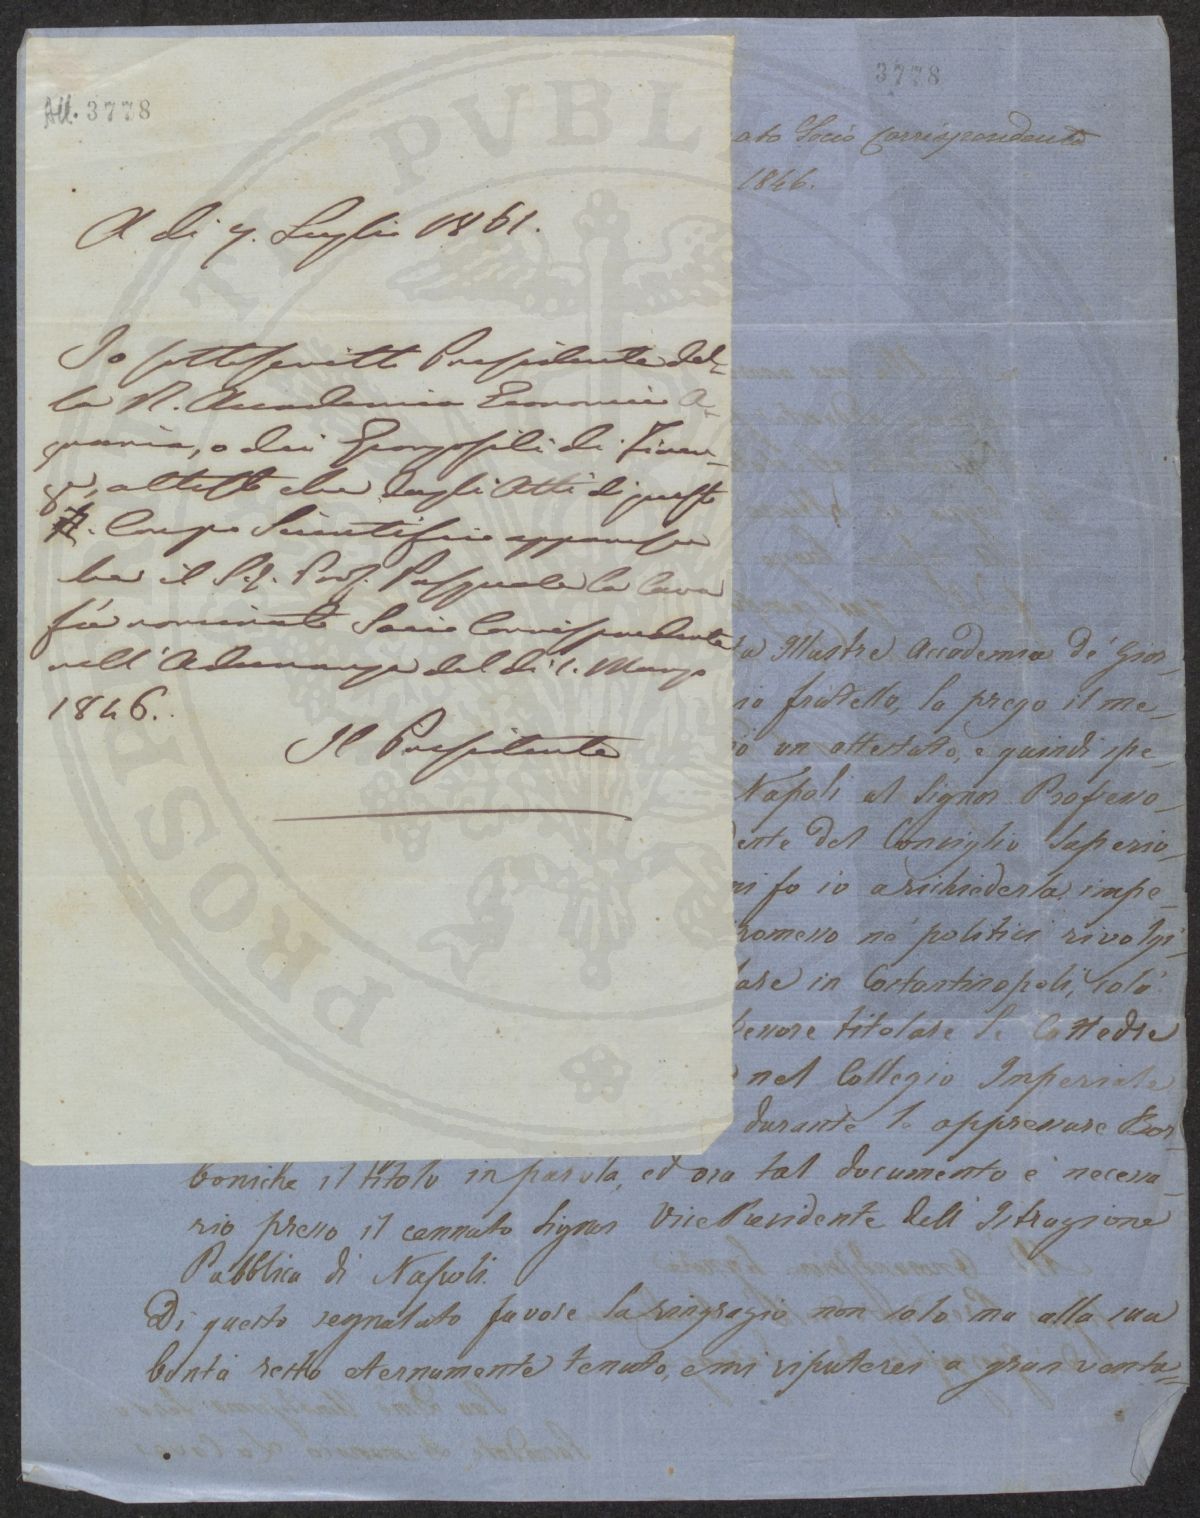 All. 3778
A dì 7. Luglio 1861.
Io sottoscritto Presidente del-
la R. Accademia Economico A-
graria, o dei Georgofili di Firen-
ze, attesto che dagli Atti di questo
Corpo Scientifico apparisce
che il Sig. Prof. Pasquale La Cava
fù nominato Socio Corrispondente
nell'Adunanza del dì 1. Marzo
1846.
Il Presidente
3778
ato Socio Corrispondente
1846.
ta Illustre Accademia de' Gior-
io fratello, la prego il me-
un attestato, e quindi spe-
Napoli al Signor Professo-
dente del Consiglio Superio-
mi fo io a richiederla, impe-
romesso nè politici rivolgi-
lare in Costantinopoli, solo
fessore titolare le Cattedre
nel Collegio Imperiale
durante le oppressure Bor-
boniche il titolo in parola, ed ora tal documento è necessa-
rio presso il cennato Signor VicePresidente dell'Istruzione
Pubblica di Napoli.
Di questo segnalato favore la ringrazio non solo ma alla sua
bontà resto eternamente tenuto, e mi riputerei a gran vanta-
PROSPERITATI PVBLICAE